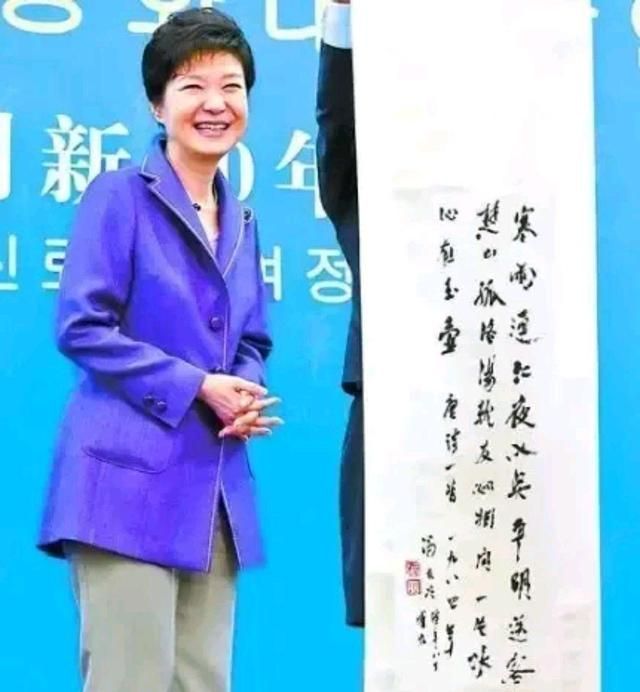 新 0年
신뢰 여정
寒雨連江夜入吳平明送客
楚山孤洛陽親友如相問一片冰
心在玉壺 唐詩一首 一九八四年
馮友蘭時年八十